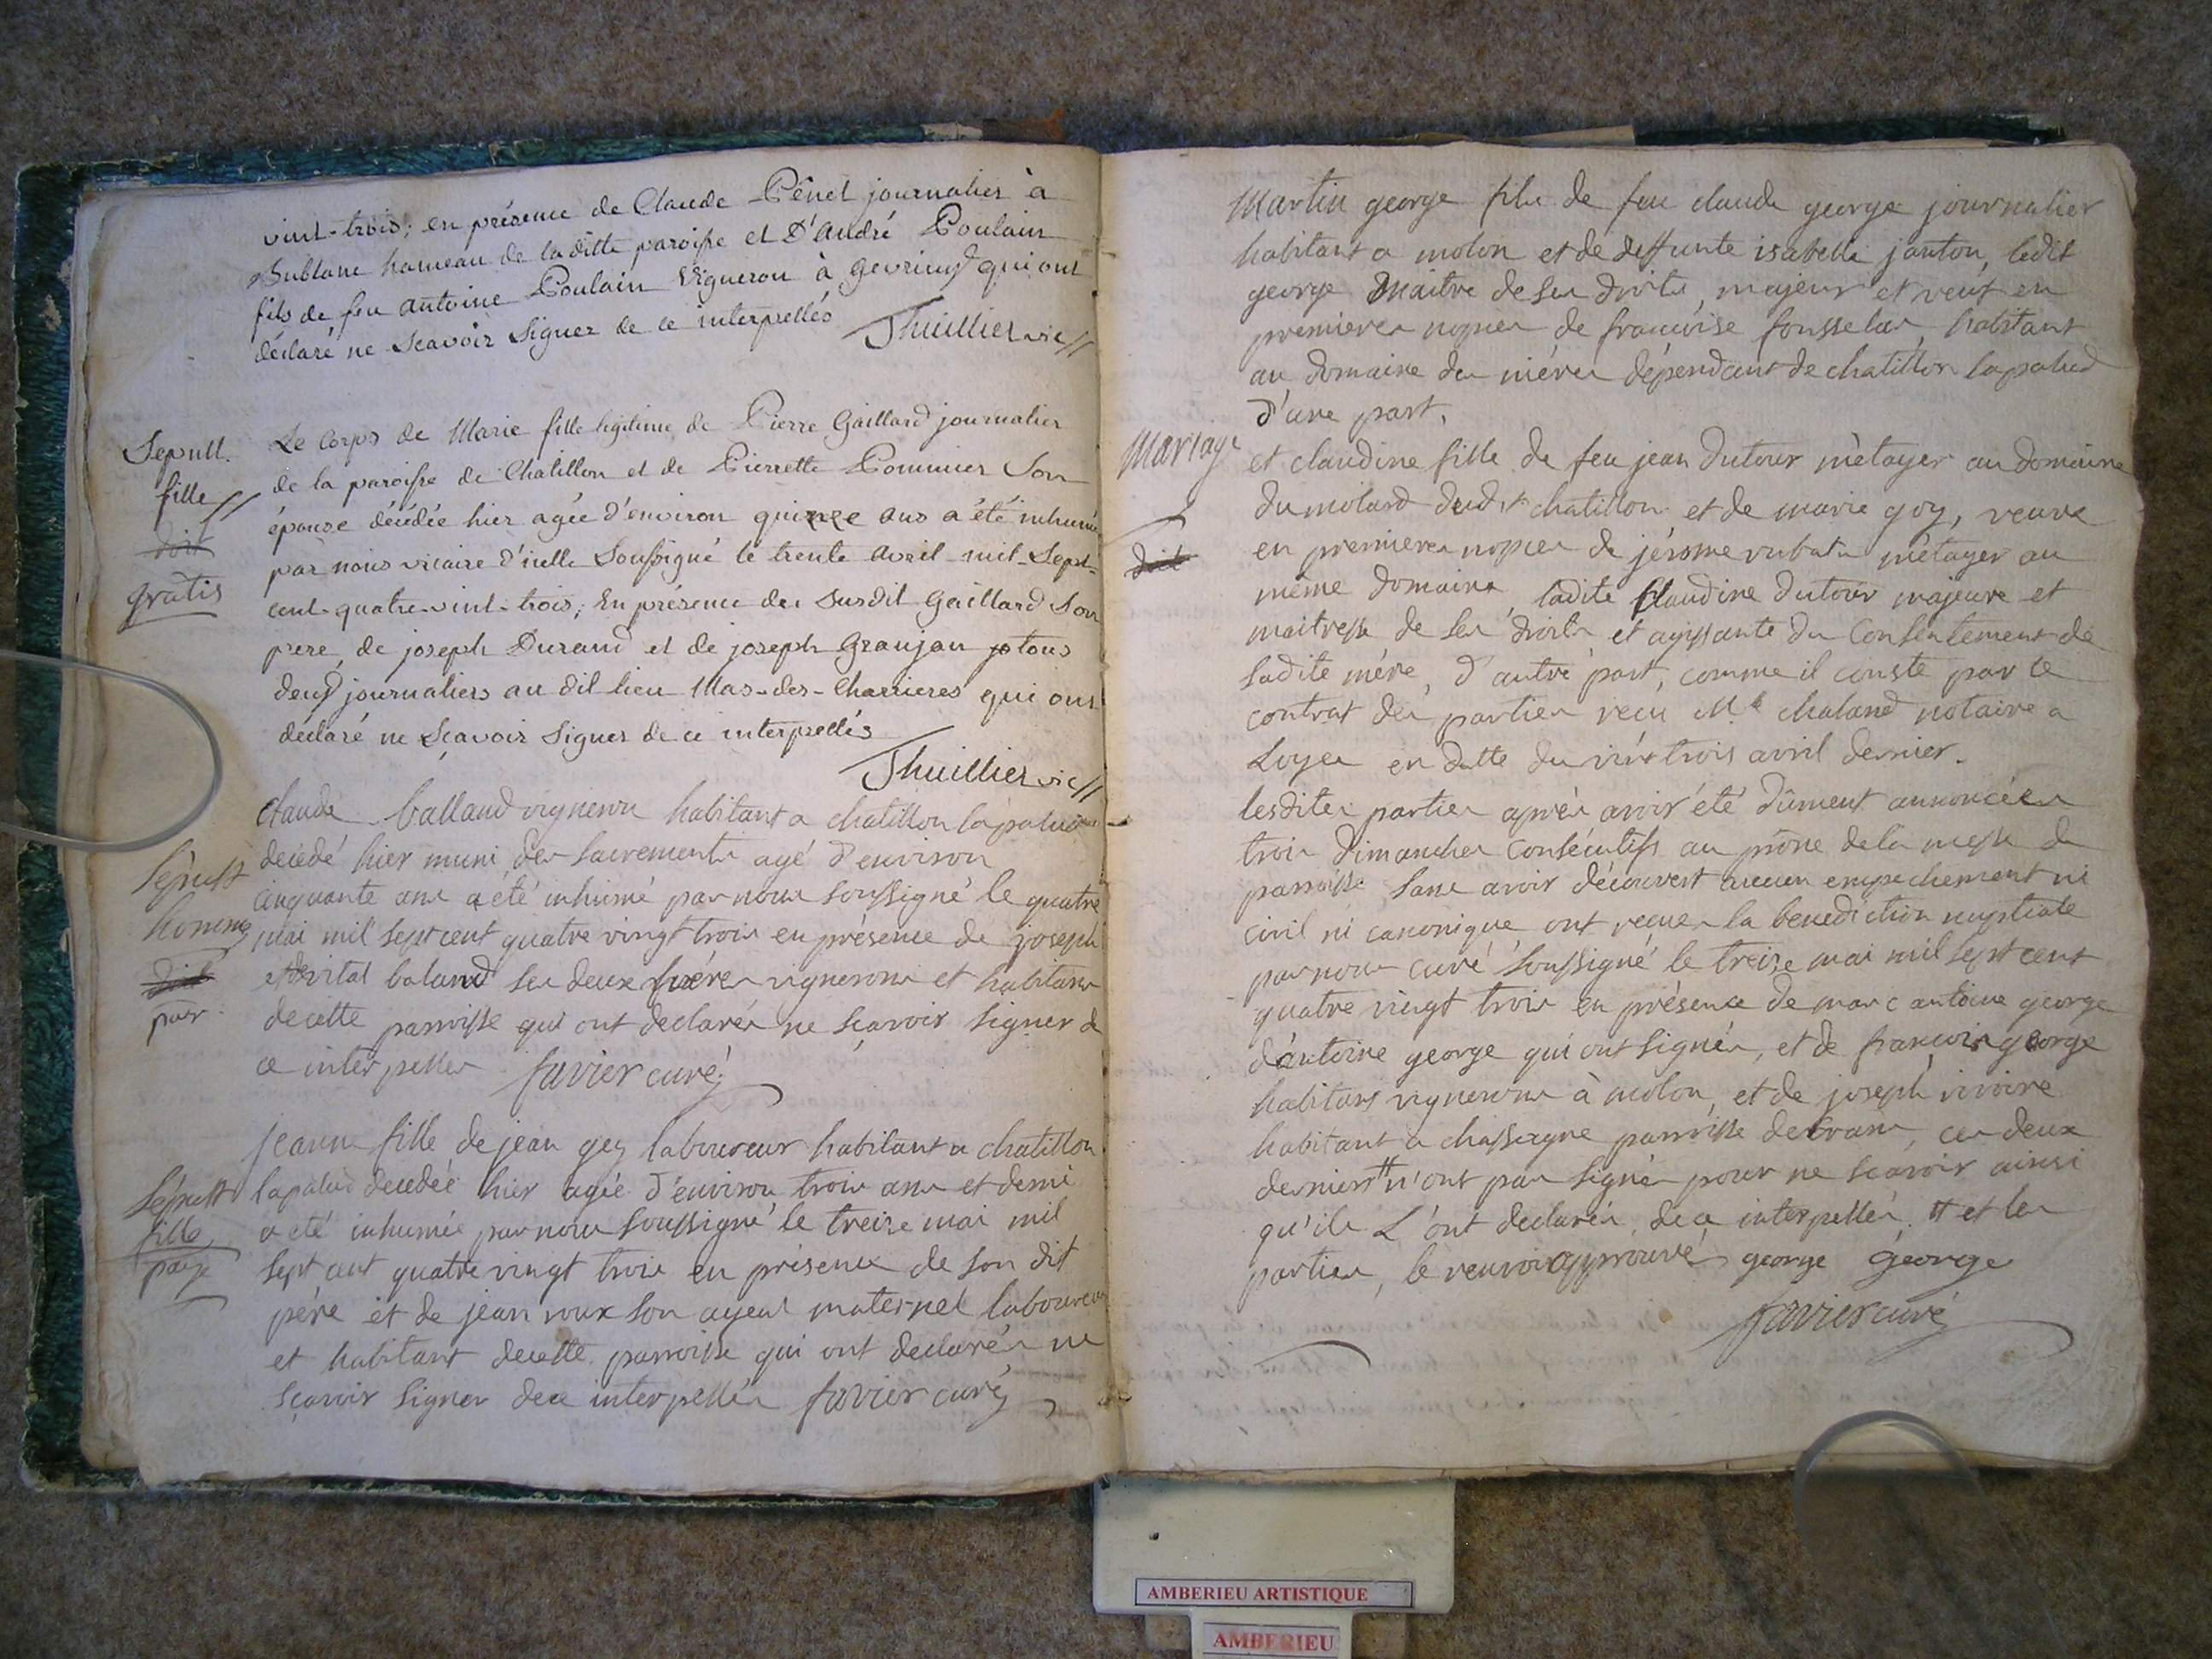 vint-trois; en présence de Claude Pênet journalier à
Bublane hameau de la ditte paroisse et D'André Poulain
fils de feu antoine Poulain Vigneron à gevrieux qui ont
déclaré ne Scavoir Signer de ce interpellés Thuillier vic//
Sepult.
fille//
doit
gratis
Le Corps de Marie fille légitime de Pierre Gaillard journalier
de la paroisse de Chatillon et de Pierrette Pommier Son
épouse décédée hier agée d'environ quinze ans a été inhumée
par nous vicaire d'icelle Soussigné le trente avril mil-Sept-
cent-quatre-vint-trois; En présence du Susdit Gaillard Son
pere, de joseph Durand et de joseph Granjan tous
deux journaliers au dit lieu Mas-des-Charrieres qui ont
déclaré ne Sçavoir Signer de ce interpellés
Thuillier vic//
Sépult
homme
doit
paié
claude balland vigneron habitant a chatillon la palud
décédé hier muni des sacrements agé d'environ
cinquante ans a été inhumé par nous soussigné le quatre
mai mil sept cent quatre vingt trois en présence de joseph
et vital baland ses deux frères vignerons et habitans
de cette parroisse qui ont declarés ne sçavoir signer de
ce interpellés favier curé
Sépult
fille
paié
jeanne fille de jean gey laboureur habitant a chatillon
lapalud decedée hier agée d'environ trois ans et demi
a été inhumée par nous soussigné le treize mai mil
sept cent quatre vingt trois en présence de son dit
père et de jean roux son ayeul maternel laboureur
et habitant de cette parroisse qui ont declarés ne
sçavoir signer de ce interpellés favier curé
Martin george fils de feu claude george journalier
habitant a molon et de deffunte isabelle janton, ledit
george maitre de ses droits, majeur et veuf en
premieres nopces de françoise fousselar, habitant
au domaine des méres dépendant de chatillon lapalud
d'une part,
Mariage
doit
et claudine fille de feu jean Dutour métayer au domaine
du molard dudt chatillon et de marie goy, veuve
en premieres nopces de jérosme rubat métayer au
même domaine ladite Claudine Dutour majeure et
maitresse de ses droits et agissante du Consentement de
sadite mére, d'autre part, comme il conste par le
contrat des parties recu Me chaland notaire a
Loyes en datte du vint trois avril dernier.
lesdites parties après avoir été dûment annoncées
trois dimanches consécutifs au prône de la messe de
parroisse sans avoir découvert aucun empechement ni
civil ni canonique ont recues la benediction nuptiale
par nous curé soussigné le treize mai mil sept cent
quatre vingt trois en présence de marc antoine george
d'antoine george qui ont signés, et de françois george
habitans vignerons à molon, et de joseph vivoire
habitant a chassagne parroisse de crans, ces deux
derniers # n'ont pas signés pour ne sçavoir ainsi
qu'ils L'ont declarés de ce interpellés. # et les
parties, le renvoi approuvé george george
favier curé
AMBERIEU ARTISTIQUE
AMBERIEU